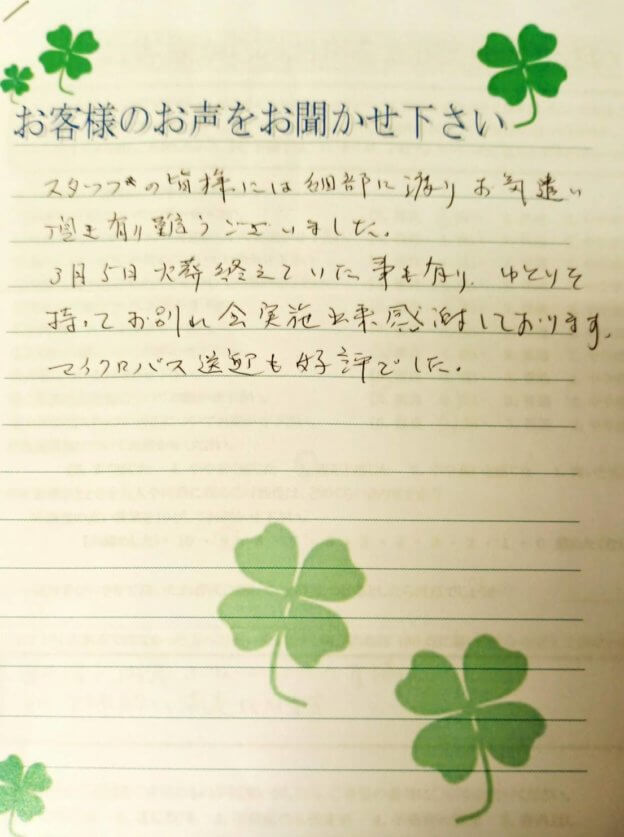 お客様のお声をお聞かせ下さい
スタッフの皆様には細部に渡りお気遣い
頂き有り難うございました。
3月5日火葬終えていた事も有り、ゆとりを
持ってお別れ会実施出来感謝しております。
マイクロバス送迎も好評でした。